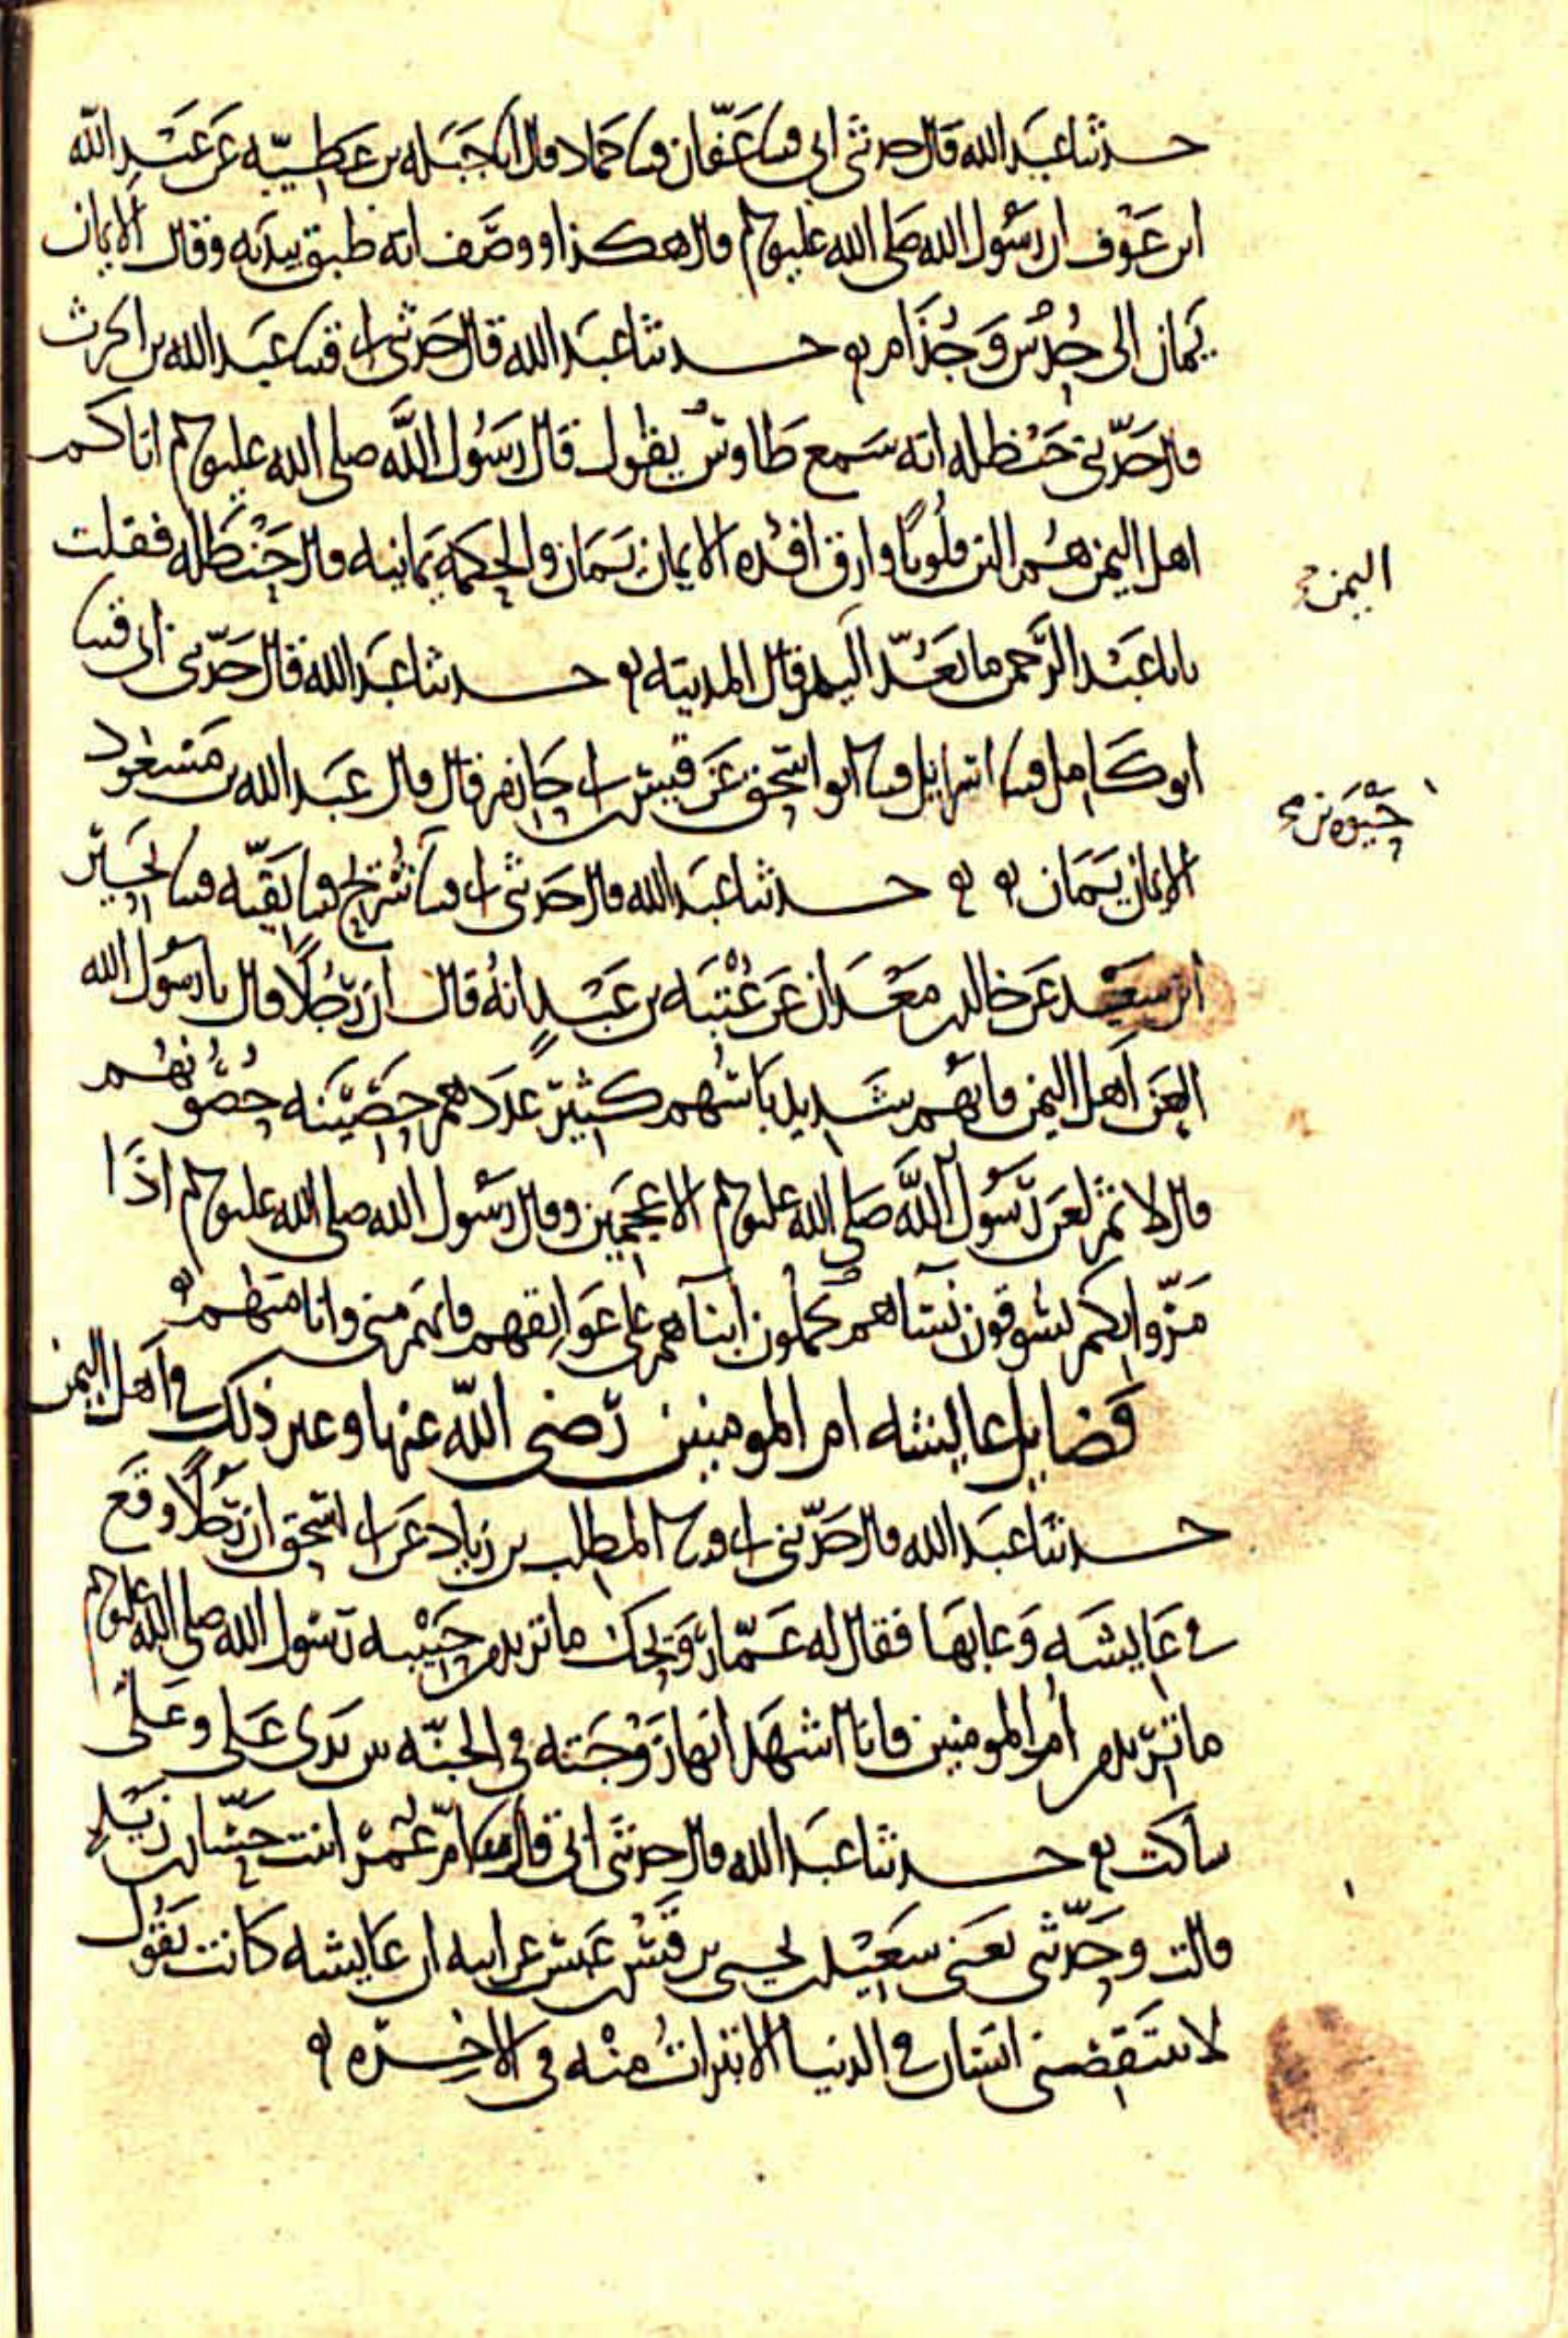 حدثنا عبد الله قال حدثني ابي قثنا عفان قثنا حماد قال انا جبله بن عطيه عن عبد الله
ابن عوف ان رسول الله صلى الله عليه وسلم قال هكذا ووصف انه طبق بيديه وقال الايمان
يمان الى حدس وجذام حدثنا عبد الله قال حدثني ابي قثنا عبد الله بن الحرث
قال حدثني حنظله انه سمع طاوس يقول قال رسول الله صلى الله عليه وسلم اتاكم
اهل اليمن هم الين قلوبا وارق افئده الايمان يمان والحكمة يمانيه قال حنظله فقلت
اليمن
يابا عبد الرحمن ما تعد اليمن قال المدينه حدثنا عبد الله قال حدثني ابي قثنا
ابو كامل قثنا اسرايل قثنا ابو اسحق عن قيس بن ابي حازم قال قال عبد الله بن مسعود
حيوه بن
الايمان يمان حدثنا عبد الله قال حدثني ابي قثنا شريح قثنا بقيه قثنا بحير
ابن سعيد عن خالد بن معدان عن عتبه بن عبد انه قال ان رجلا قال يا رسول الله
العن اهل اليمن فانهم شديد باسهم كثير عددهم حصينه حصونهم
قال لا ثم لعن رسول الله صلى الله عليه وسلم الاعجمين وقال رسول الله صلى الله عليه وسلم اذا
مروا بكم يسوقون نساهم يحملون ابناهم على عواتقهم فانهم مني وانا منهم
فضايل عايشه ام المومنين رضي الله عنها وغير ذلك في اهل اليمن
حدثنا عبد الله قال حدثني ابي قثنا المطلب بن زياد عن ابي اسحق ان رجلا وقع
في عايشه وعابها فقال له عمار ويحك ما تريد من حبيبه رسول الله صلى الله عليه وسلم
ما تريد من ام المومنين فانا اشهد انها زوجته في الجنه بين يدي علي وعلي
ساكت حدثنا عبد الله قال حدثني ابي قال ام عمر ابنت حسان بن زيد
قالت وحدثني يعني سعيد بن يحيى بن قيس بن عبس عن ابيه ان عايشه كانت تقول
لا ينتقصني انسان في الدنيا الا تبرات منه في الاخره